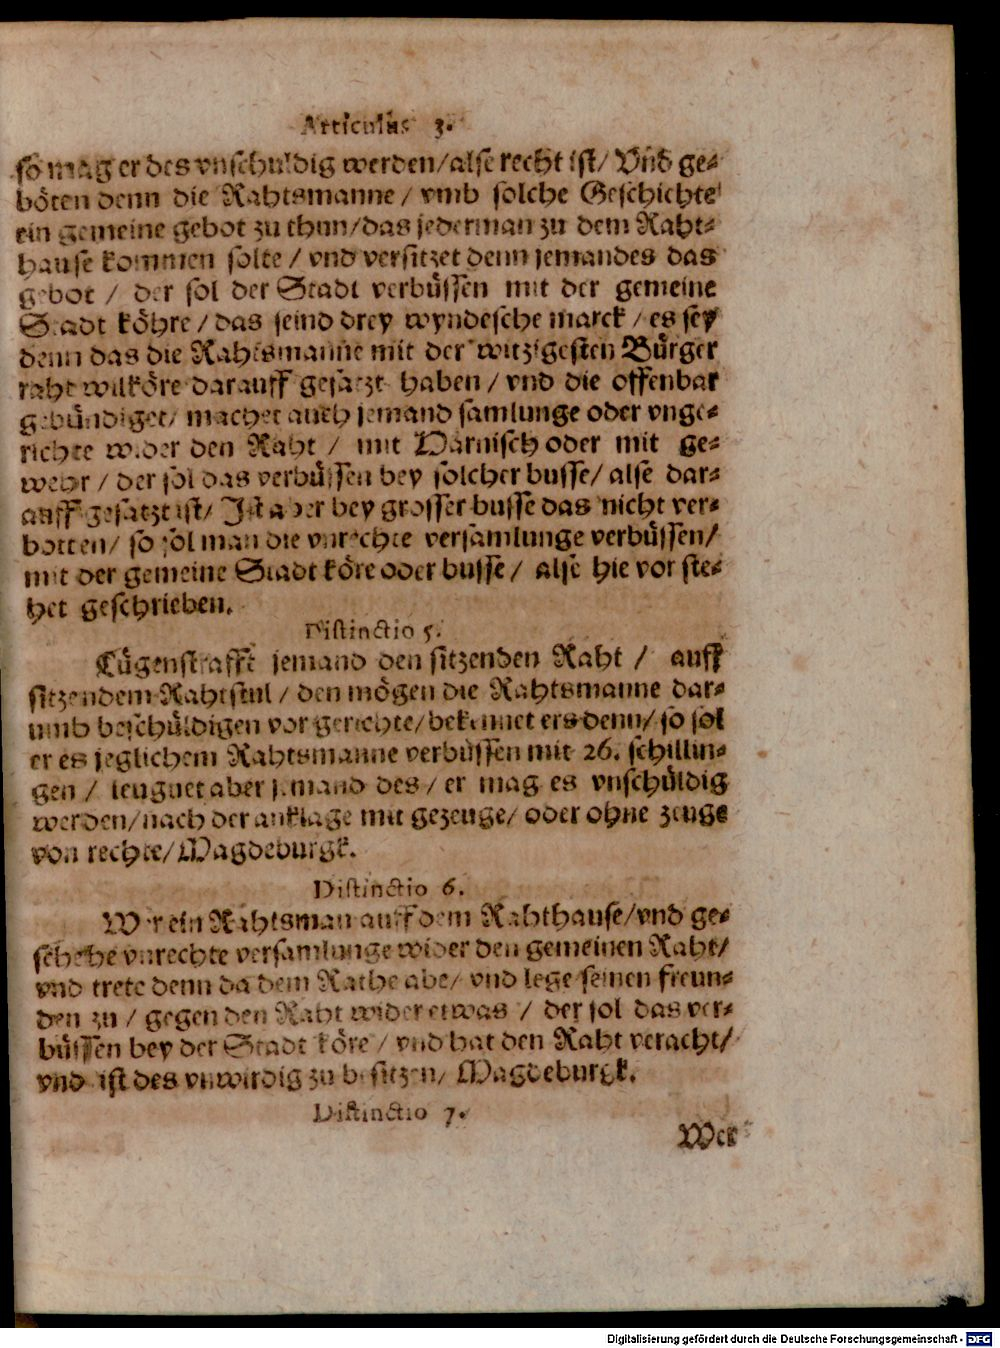 Articulus 3.
so mag er des vnschuldig werden/alse recht ist/ Vnd ge-
böten denn die Rahtsmanne / vmb solche Geschichte
ein gemeine gebot zu thun/das jederman zu dem Raht-
hause kommen solte / vnd versitzet denn jemandes das
gebot / der sol der Stadt verbüssen mit der gemeine
Stadt köhre/das seind drey wyndesche marck / es sey
denn das die Rahtsmanne mit der witzigesten Bürger
raht wilköre darauff gesatzt haben/ vnd die offenbar
gebündiget/ machet auch jemand samlunge oder vnge-
richte wider den Raht / mit Harnisch oder mit ge-
wehr / der sol das verbüssen bey solcher busse/ alse dar-
auff gesatzt ist/ Ist aber bey grosser busse das nicht ver-
botten/ so sol man die vnrechte versamlunge verbüssen/
mit der gemeine Stadt köre oder busse/ alse hie vor ste-
het geschrieben.
Distinctio 5.
Lügenstrafft jemand den sitzenden Raht / auff
sitzendem Rahtstul / den mögen die Rahtsmanne dar-
umb beschüldigen vor gerichte/bekennet ers denn/ so sol
er es jeglichem Rahtsmanne verbüssen mit 26. schillin-
gen / leugnet aber jemand des/ er mag es vnschüldig
werden/nach der anklage mit gezeuge/ oder ohne zeuge
von rechte/Magdeburgk.
Distinctio 6.
Wer ein Rahtsman auff dem Rahthause/vnd ge-
schehe vnrechte versamlunge wider den gemeinen Raht/
vnd trete denn da dem Rathe abe/ vnd lege seinen freun-
den zu / gegen den Raht wider etwas / der sol das ver-
büssen bey der Stadt köre / vnd hat den Raht veracht/
vnd ist des vnwirdig zu besitzen/ Magdeburgk.
Distinctio 7.
Wer
Digitalisierung gefördert durch die Deutsche Forschungsgemeinschaft - DFG